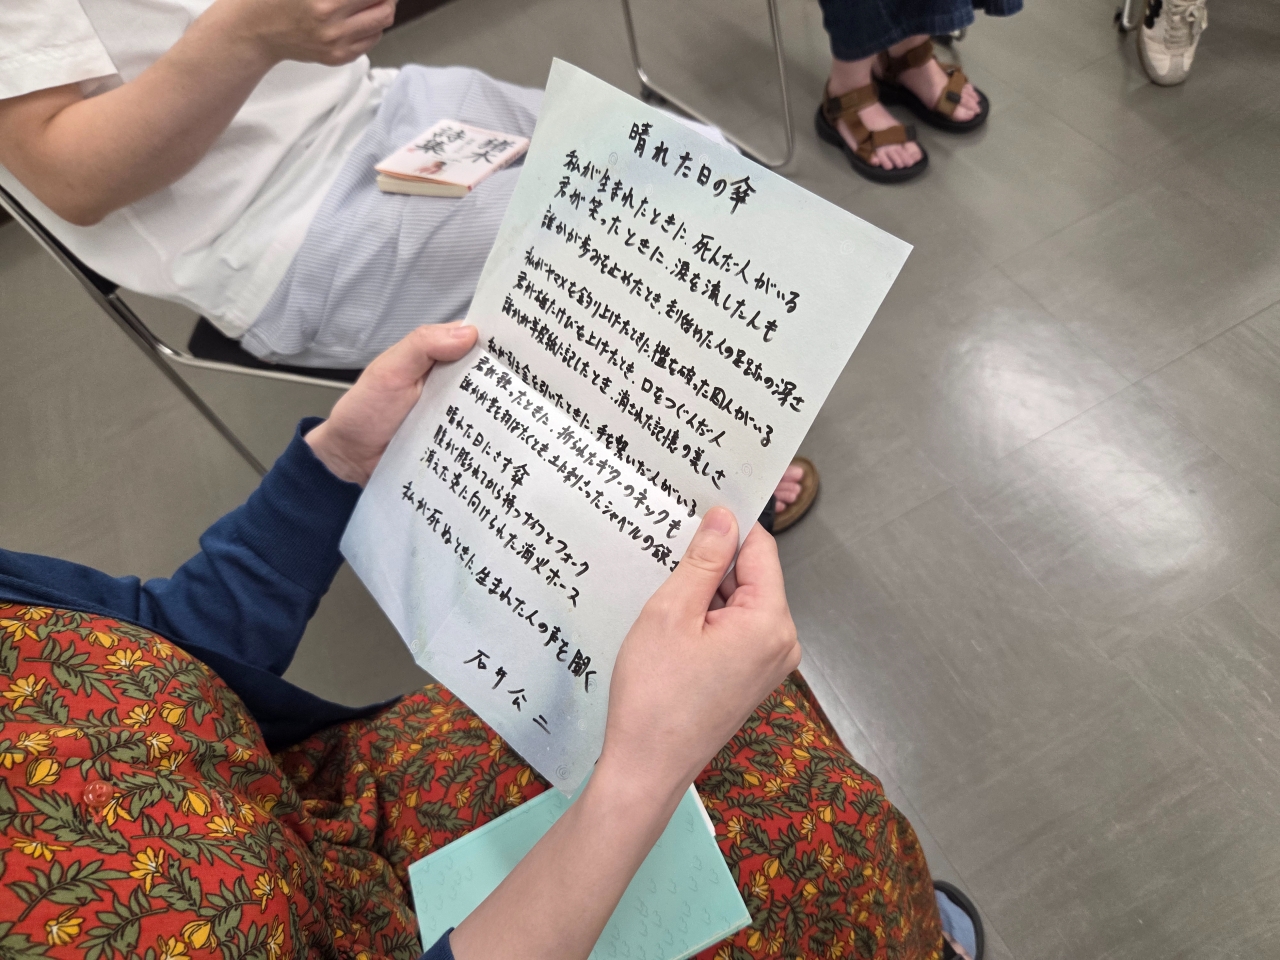 晴れた日の傘
私が生まれたときに、死んだ人がいる
君が笑ったときに、涙を流した人も
誰かが歩みを止めたとき、走り始めた人の足跡の深さ
私がヤマメを釣り上げたときに、檻を破った囚人がいる
君が雄たけびを上げたとき、口をつぐんだ人
誰かが羊皮紙に記したとき、消された記憶の美しさ
私が引き金を引いたときに、手を繋いだ人がいる
君が歌ったときに、折られたギターのネックも
誰かが雲を羽ばたくとき、土に刺さったシャベルの鋭さ
晴れた日にさす傘
腹が膨られてから持つナイフとフォーク
消えた炎に向けられた消火ホース
私が死ぬときに、生まれた人の声を聞く
石井公二
詩集